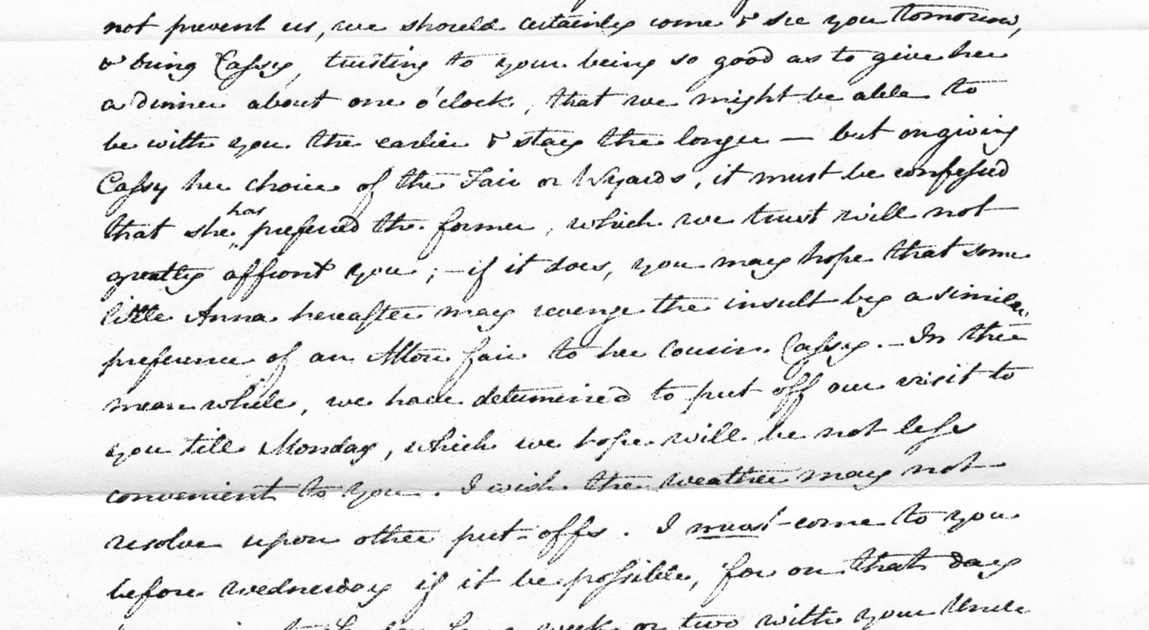 not prevent us, we should certainly come & see you tomorrow,
& bring Cassy, trusting to your being so good as to give her
a dinner about one o'clock, that we might be able to
be with you the earlier & stay the longer — but on giving
Cassy her choice of the Fair or Wyards, it must be confessed
that she has preferred the former, which we trust will not
greatly affront you; — if it does, you may hope that some
little Anna hereafter may revenge the insult by a similar
preference of an Alton fair to her Cousin Cassy. — In the
mean while, we have determined to put off our visit to
you till Monday, which we hope will be not less
convenient to you. I wish the weather may not
resolve upon other put-offs. I must come to you
before wednesday if it be possible, for on that day
week or two with your Uncle